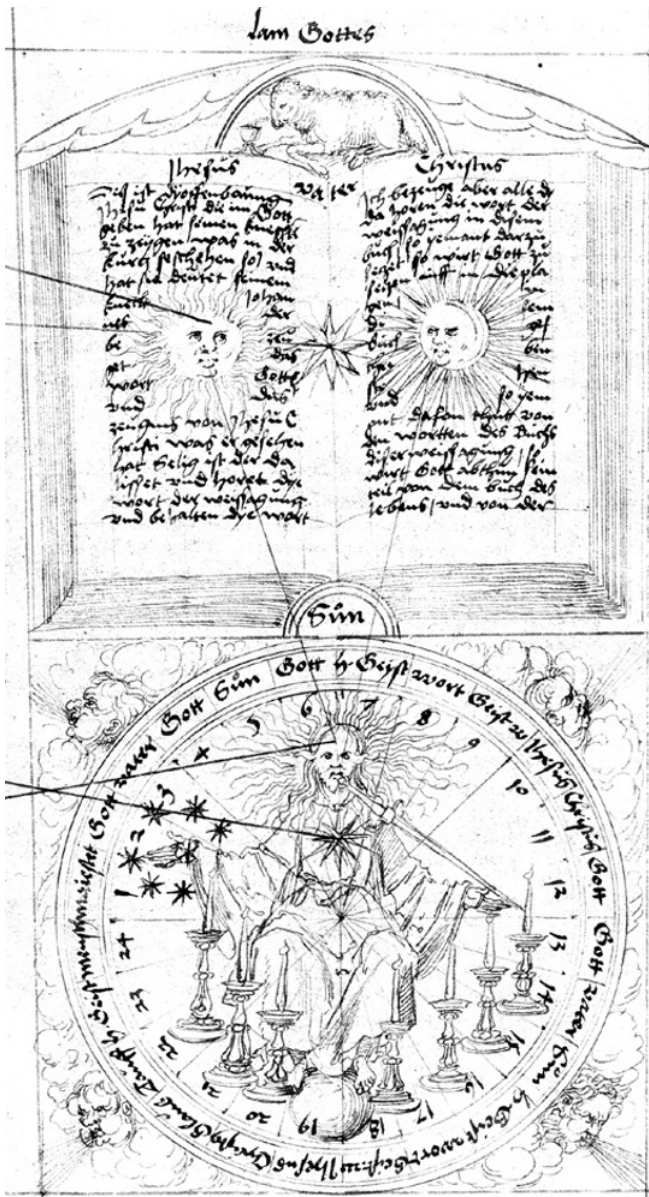 lam Gottes
Jhesus
Christus
vater
Dis ist
Jhesu Christi die im Gott
geben hat seinen
zu zeygen was in der
kurtz geschehen sol und
hat sie deutet seinem
knecht Johan
der
be zeu
get das
wort Gottes
und das
zeugnus von Jhesu C
hristi was er gesehen
hat Selig ist der da
lisset und horete dye
wort der weissagung
und behalten dye wort
Ich bezeuge aber alle dy
da horen die wort der
weissagung in disem
buch so jemant darzu
setzet so wirt Gott zu
setzen auff in die pla
gen in
di sem
buch ges
ben
und so jem
ant dafon thutt von
den wortten des buchs
diser weissagung so
wirt Gott abthun sein
teil von dem buch des
lebens und von der
Sůn
Gott vater Gott Sůn Gott h Geist wort Geist Jhesus Christus Gott
Gott vater Sůn h Geist wort Geist Jhesus Christus
1 2 3 4 5 6 7 8 9 10 11 12 13 14 15 16 17 18 19 20 21 22 23 24